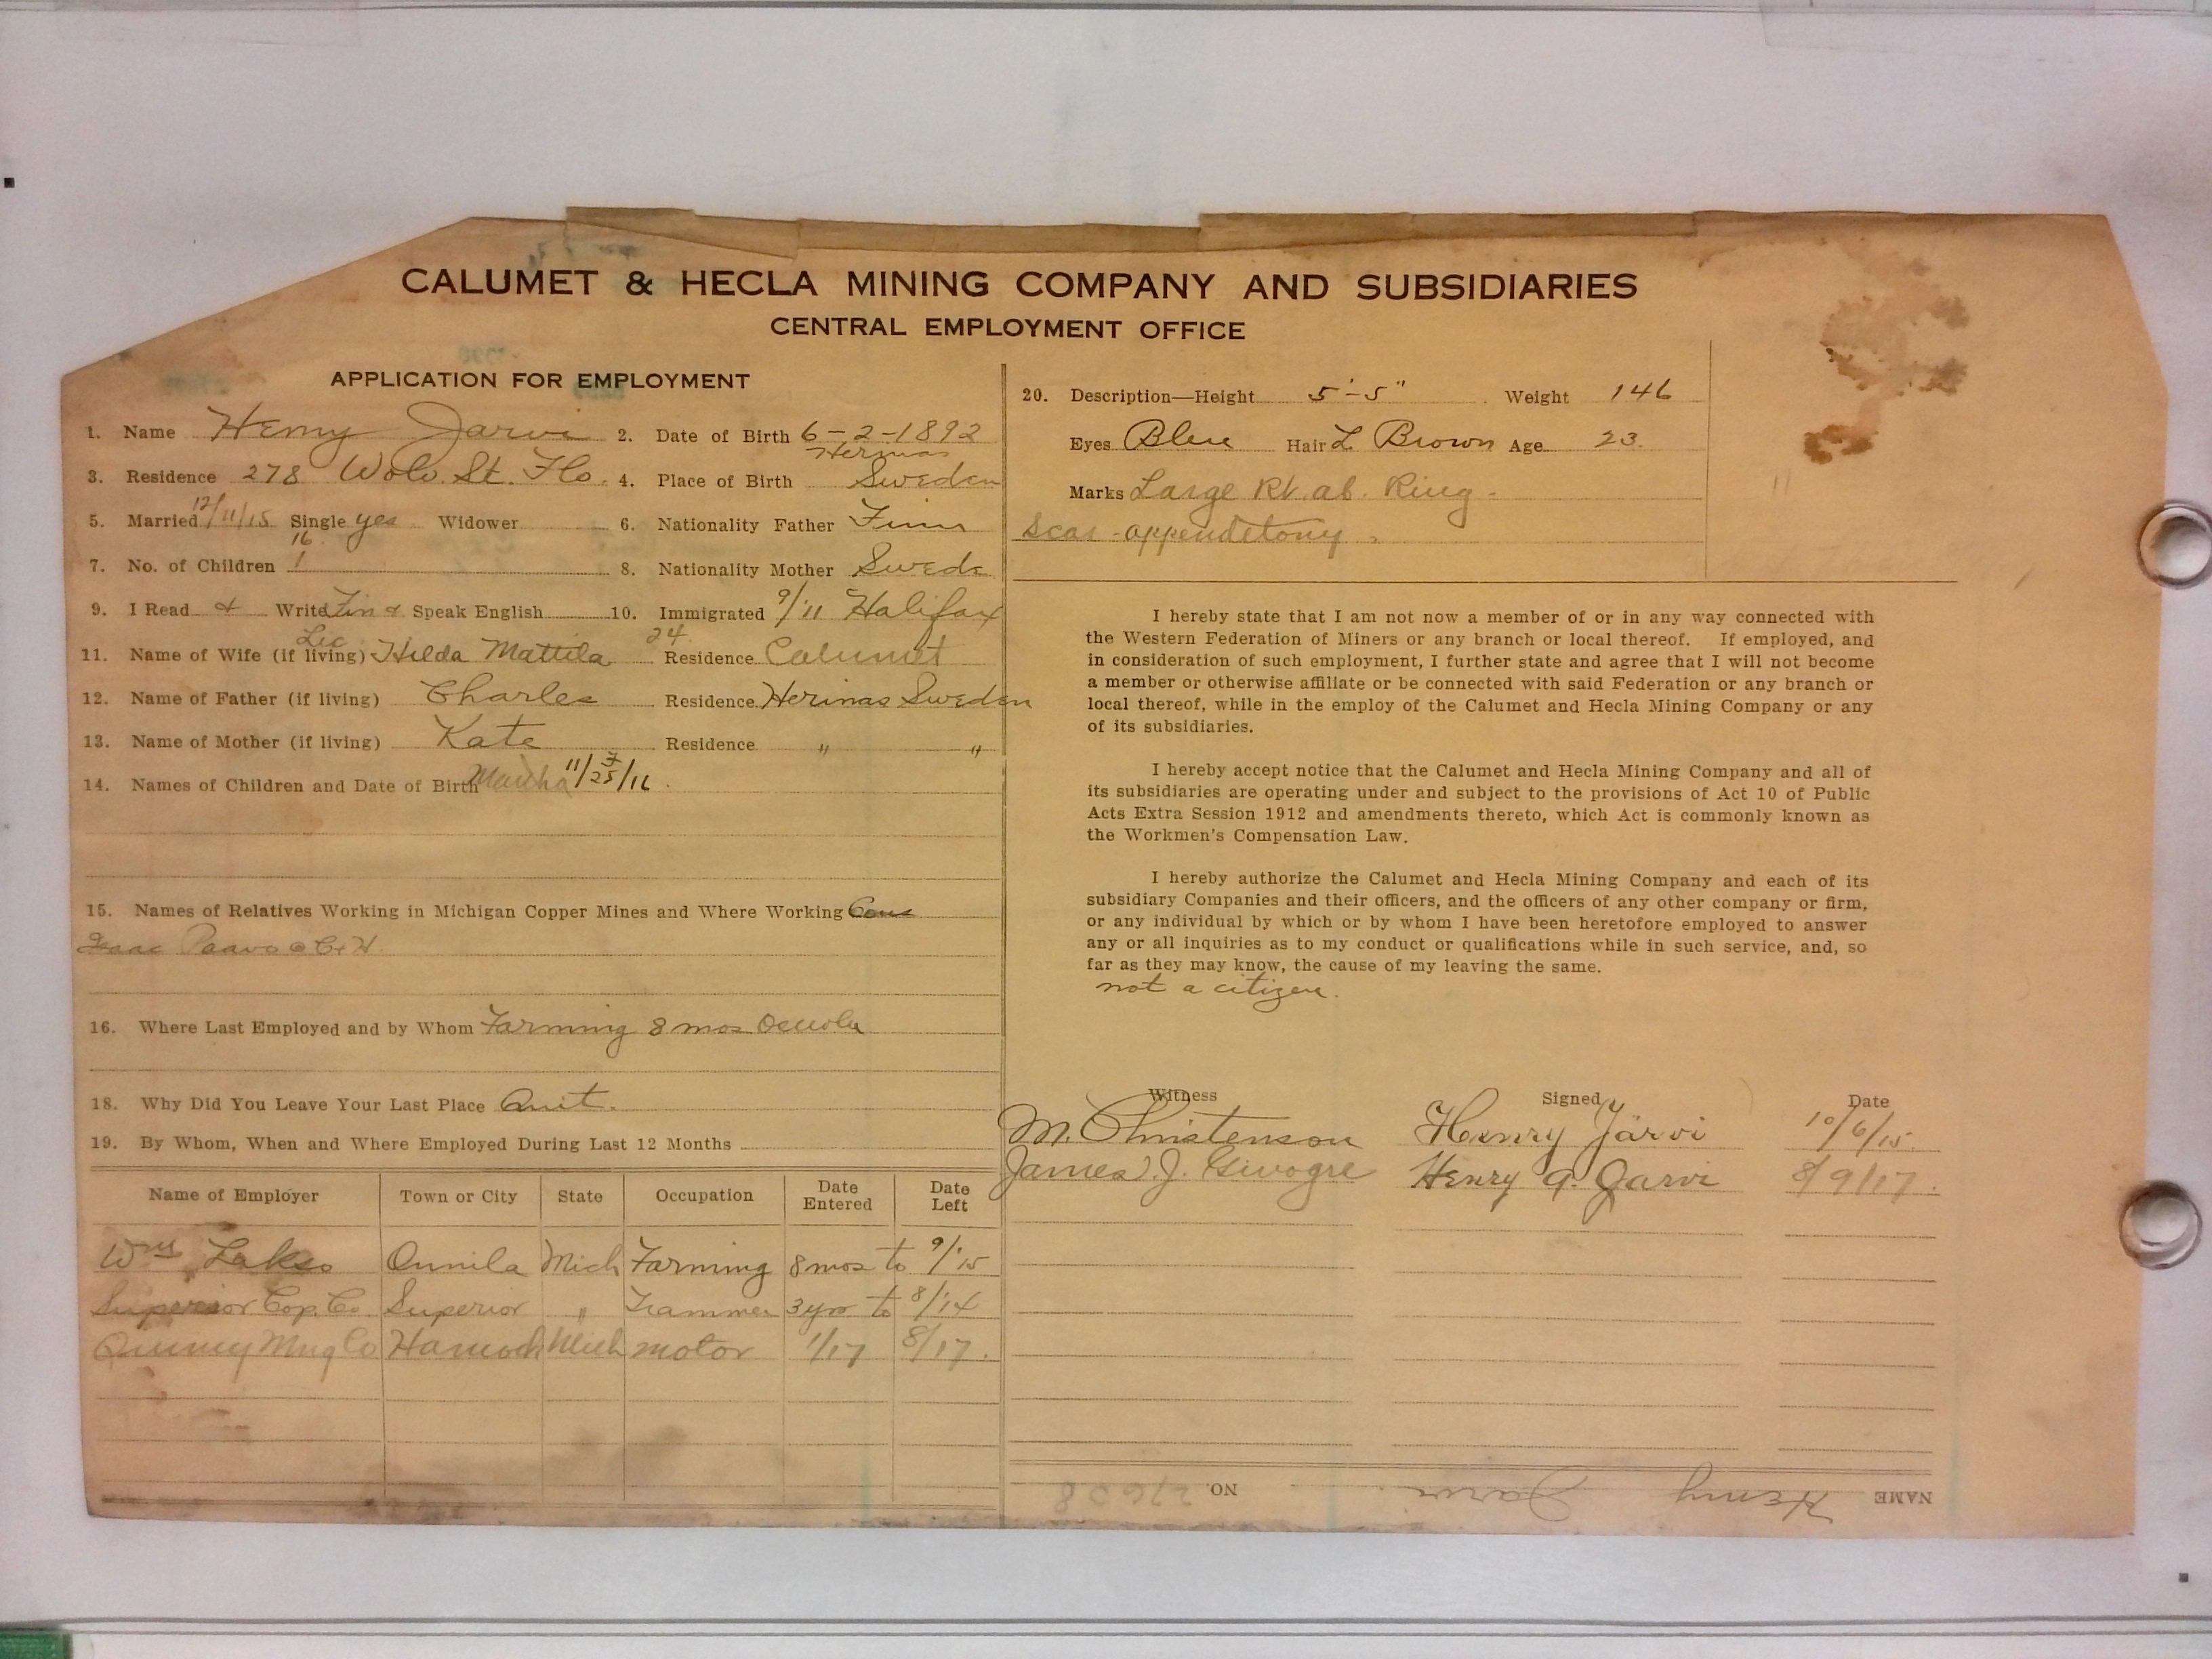 CALUMET & HECLA MINING COMPANY AND SUBSIDIARIES
CENTRAL EMPLOYMENT OFFICE
APPLICATION FOR EMPLOYMENT
1. Name Henry Jarvi 2. Date of Birth 6-2-1892
Herinas
3. Residence 278 Wolv. St. Flo. 4. Place of Birth Sweden
5. Married 12/11/15 Single yes Widower 6. Nationality Father Finn
16
7. No. of Children 1 8. Nationality Mother Swede
9. I Read & Write Fin & Speak English 10. Immigrated 9/'11 Halifax
Lic 24
11. Name of Wife (if living) Hilda Mattila Residence Calumet
12. Name of Father (if living) Charles Residence Herinas Sweden
13. Name of Mother (if living) Kate Residence " "
14. Names of Children and Date of Birth Martha 11/25/16
15. Names of Relatives Working in Michigan Copper Mines and Where Working Cous
Isaac Paavo @ C & H.
16. Where Last Employed and by Whom Farming 8 mos Osceola
18. Why Did You Leave Your Last Place Quit.
19. By Whom, When and Where Employed During Last 12 Months
Name of Employer Town or City State Occupation Date Entered Date Left
Wm Lakso Onnila Mich Farming 8 mos to 9/'15
Superior Cop. Co. Superior " Trammer 3 yrs to 8/'14
Quincy Mng Co Hancock Mich motor 1/17 8/17.
20. Description—Height 5'-5" Weight 146
Eyes Blue Hair L Brown Age 23.
Marks Large Rt. ab. Ring -
Scar - appendetomy.
I hereby state that I am not now a member of or in any way connected with
the Western Federation of Miners or any branch or local thereof. If employed, and
in consideration of such employment, I further state and agree that I will not become
a member or otherwise affiliate or be connected with said Federation or any branch or
local thereof, while in the employ of the Calumet and Hecla Mining Company or any
of its subsidiaries.
I hereby accept notice that the Calumet and Hecla Mining Company and all of
its subsidiaries are operating under and subject to the provisions of Act 10 of Public
Acts Extra Session 1912 and amendments thereto, which Act is commonly known as
the Workmen's Compensation Law.
I hereby authorize the Calumet and Hecla Mining Company and each of its
subsidiary Companies and their officers, and the officers of any other company or firm,
or any individual by which or by whom I have been heretofore employed to answer
any or all inquiries as to my conduct or qualifications while in such service, and, so
far as they may know, the cause of my leaving the same.
not a citizen.
Witness Signed Date
M. Christenson Henry Järvi 10/6/15.
James J. Givogre Henry A. Jarvi 8/9/17.
NAME Henry Jarvi NO. 27658